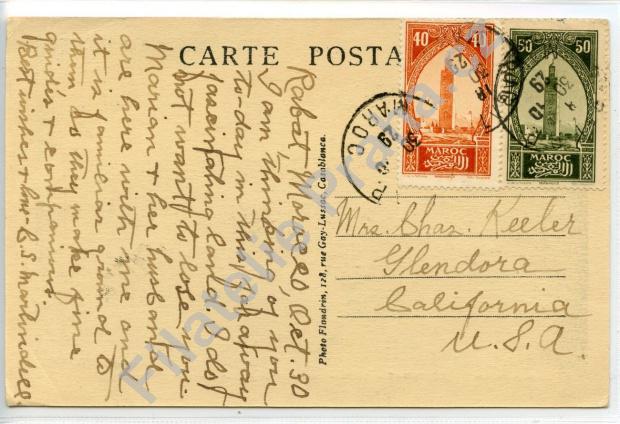 CARTE POSTA
Rabat, Morocco, Oct. 30
I am thinking of you
to-day in this faraway
fascinating land. I do
not want to lose you.
Marion & her husband
are here with me and
it is familiar ground to
them so they make fine
guides & companions.
Best wishes & love - E.S. Martindell
Photo Flandrin, 128, rue Gay-Lussac, Casablanca.
40 40
MAROC
50 50
MAROC
MAROC
30 10 29
Mrs. Chas. Keeler
Glendora
California
U.S.A.
Filatelie Praga.cz